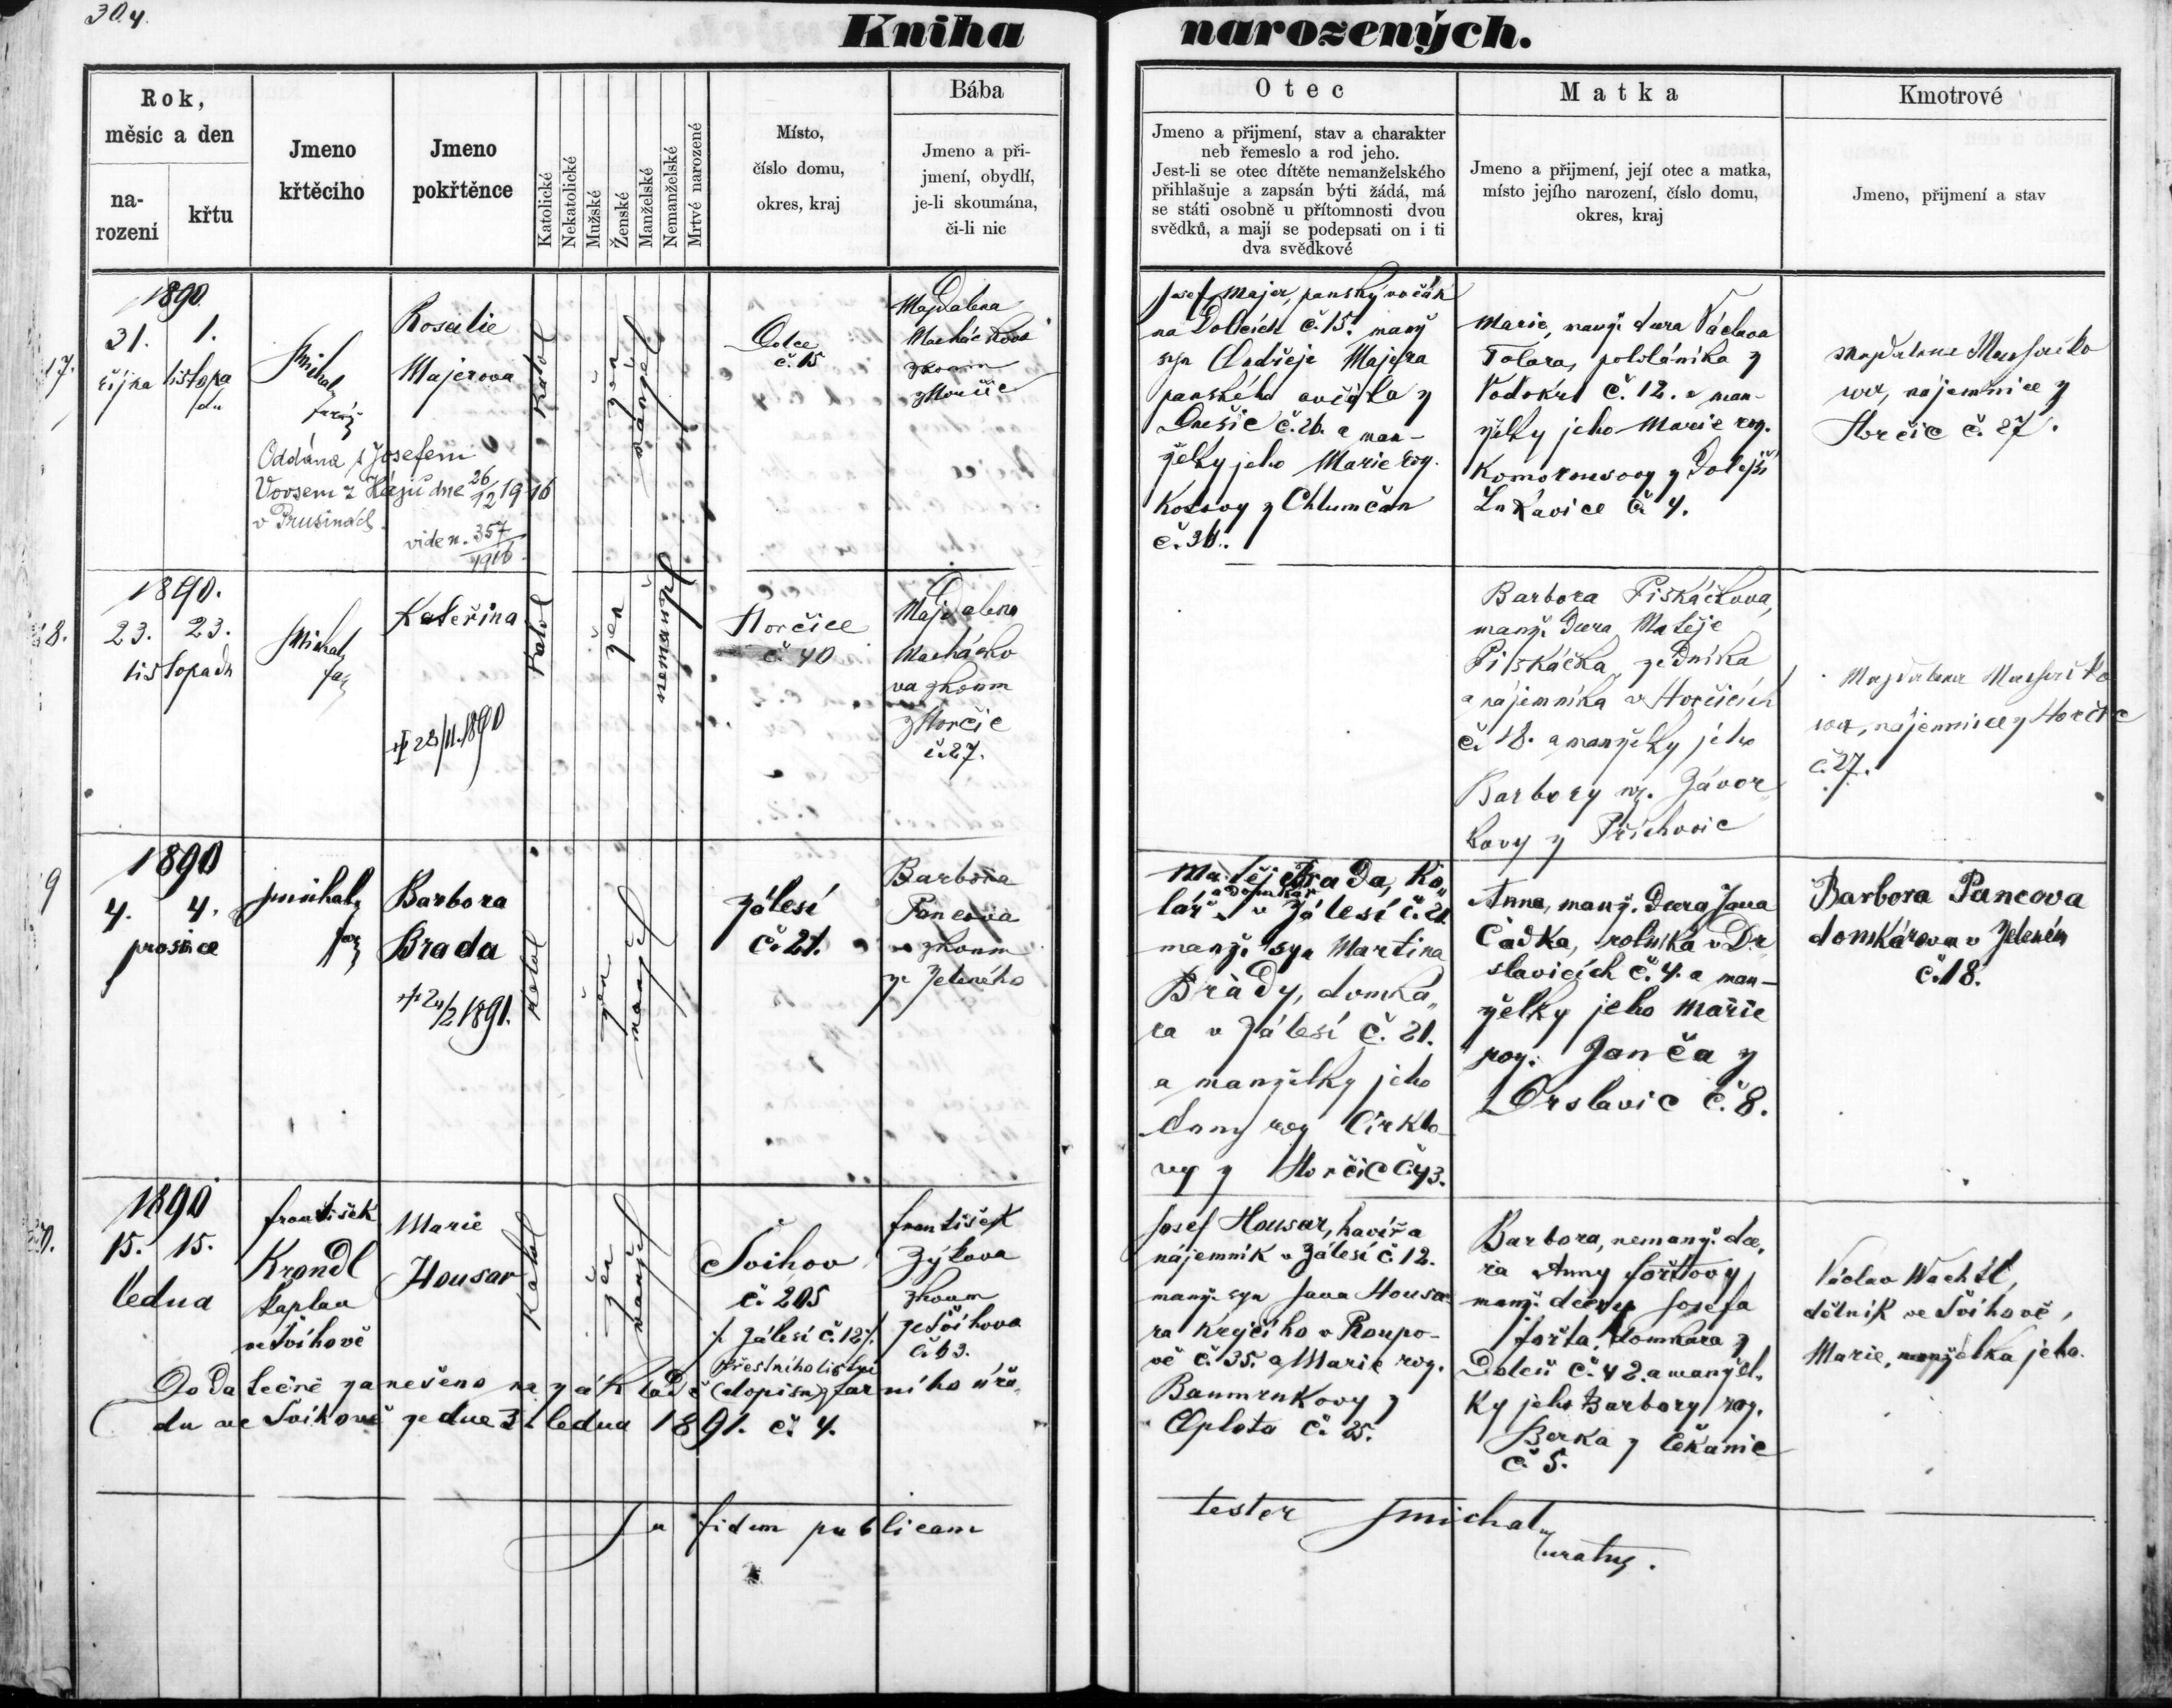 304.
Kniha narozených.
Rok,
měsíc a den
na-
rození
křtu
Jmeno
křtěcího
Jmeno
pokřtěnce
Katolické
Nekatolické
Mužské
Ženské
Manželské
Nemanželské
Mrtvé narozené
Místo,
číslo domu,
okres, kraj
Bába
Jmeno a při-
jmení, obydlí,
je-li skoumána,
či-li nic
Otec
Jmeno a přijmení, stav a charakter
neb řemeslo a rod jeho.
Jest-li se otec dítěte nemanželského
přihlašuje a zapsán býti žádá, má
se státi osobně u přítomnosti dvou
svědků, a mají se podepsati on i ti
dva svědkové
Matka
Jmeno a přijmení, její otec a matka,
místo jejího narození, číslo domu,
okres, kraj
Kmotrové
Jmeno, přijmení a stav
17.
1890.
31. 1.
října listopa
du
Michal
farář
Rosalie
Majerova
Oddána s Josefem
Vovsem z Hájů dne 26/12 1916
v Prusinách.
vide n. 357/1916
katol
žen
manžel
Dolce
č. 15
Magdalena
Macháčkova
zkoum
z Horčic
Josef Majer, panský
na Dolcích č. 15. manž
syn Ondřeje Majera
panského z
Dnešic č. 26. a man-
želky jeho Marie roz.
z Chlumčan
č. 36.
Marie, manž. dcera Václava
Tolara, pololáníka z
Vodokrt č. 12. a man-
želky jeho Marie roz.
z Dolejší
Lukavice č. 4.
Magdalena Macháčko
va, nájemnice z
Horčic č. 27.
18.
1890.
23. 23.
listopadu
Michal
far
Kateřina
23/11. 1890
katol
žen
nemanž
Horčice
č. 40
Magdalena
Macháčko
va zkoum
z Horčic
č. 27.
Barbora Piskáčkova,
manž. dcera Matěje
Piskáčka, zedníka
a nájemníka v Horčicích
č. 18. a manželky jeho
Barbory roz. Závor
kovy z Příchovic
Magdalena Macháčko
va, nájemnice z Horčic
č. 27.
19
1890
4. 4.
prosince
Michal
far
Barbora
Brada
24/2 1891.
katol
žen
manžel
Zálesí
č. 21.
Barbora
Pancova
zkoum
ze Zeleného
Matěj Brada, ko
lář a domkář v Zálesí č. 21.
manž. syn Martina
Brady, domka
ra v Zálesí č. 21.
a manželky jeho
Anny roz Cirklo
vy z Horčic č. 43.
Anna, manž. dcera Jana
Čadka, rolníka v Dr
slavicích č. 4. a man-
želky jeho Marie
roz. Janča z
Drslavic č. 8.
Barbora Pancova
domkářova v Zeleném
č. 18.
20.
1890
15. 15.
ledna
František
Krondl
kaplan
ve Švihově
Marie
Housar
katol
žen
manžel
Švihov
č. 205
/: Zálesí č. 12 :/
František
Zýkova
zkoum
ze Švihova
č. 63.
Josef Housar, havíř a
nájemník v Zálesí č. 12.
manž. syn Jana Housa
ra krejčího v Roupo-
vě č. 35. a Marie roz.
Baumrukovy z
Oplota č. 25.
Barbora, nemanž. dce
ra Anny Fořtovy
manž. dcery Josefa
Fořta, domkara z
Dolcú č. 42. a manžel
ky jeho Barbory roz.
Berka z Lékanic
č. 5.
Václav Wachtl,
dělník ve Švihově,
Marie, manželka jeho.
křestního listu
Dodatečně zanešeno na základě (dopisu) farního úřa
du ve Švihově ze dne 3. ledna 1891. č. 4.
In fidem publicam
tester Jmichal
curatus.